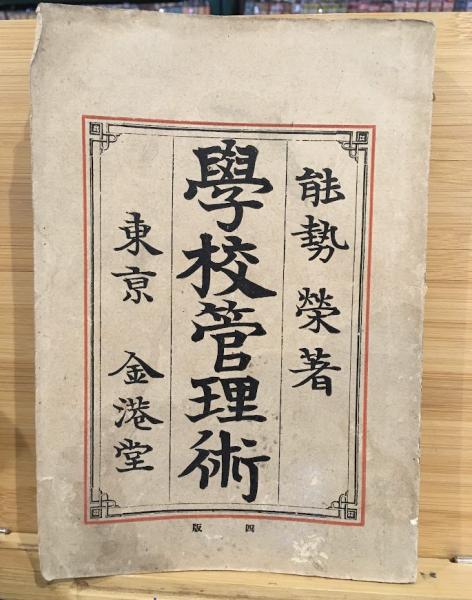 能勢榮著
學校管理術
東亰 金港堂
四版